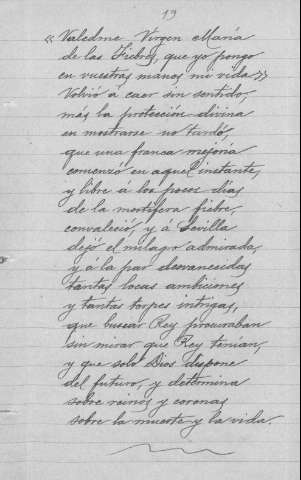 19
« Valedme Virgen María
de las Fiebres, que yo pongo
en vuestras manos mi vida »
Volvió á caer sin sentido,
más la protección divina
en mostrarse no tardó,
que una franca mejoría
comenzó en aquel instante,
y libre á los pocos dias
de la mortífera fiebre,
convaleció, y á Sevilla
dejó el milagro admirada,
y á la par desvanecidas
tantas locas ambiciones
y tantas torpes intrigas,
que buscar Rey procuraban
sin mirar que Rey tenian,
y que solo Dios dispone
del futuro, y determina
sobre reinos y coronas
sobre la muerte y la vida.